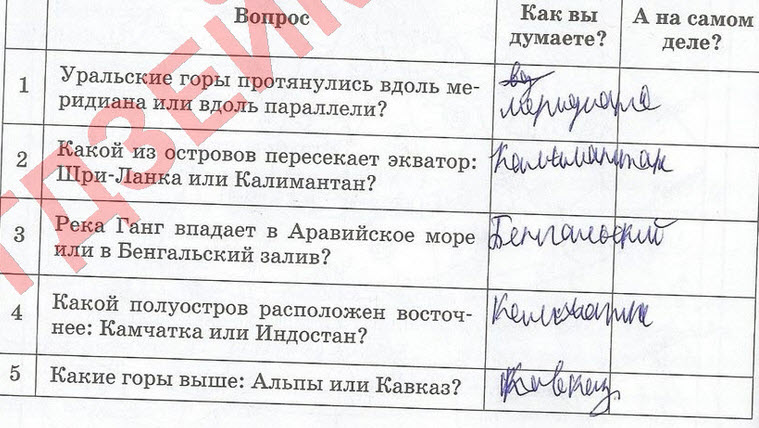 Вопрос
Как вы думаете?
А на самом деле?
1
Уральские горы протянулись вдоль ме-
ридиана или вдоль параллели?
меридиана
2
Какой из островов пересекает экватор:
Шри-Ланка или Калимантан?
Калимантан
3
Река Ганг впадает в Аравийское море
или в Бенгальский залив?
Бенгальский
4
Какой полуостров расположен восточ-
нее: Камчатка или Индостан?
5
Какие горы выше: Альпы или Кавказ?
Кавказ